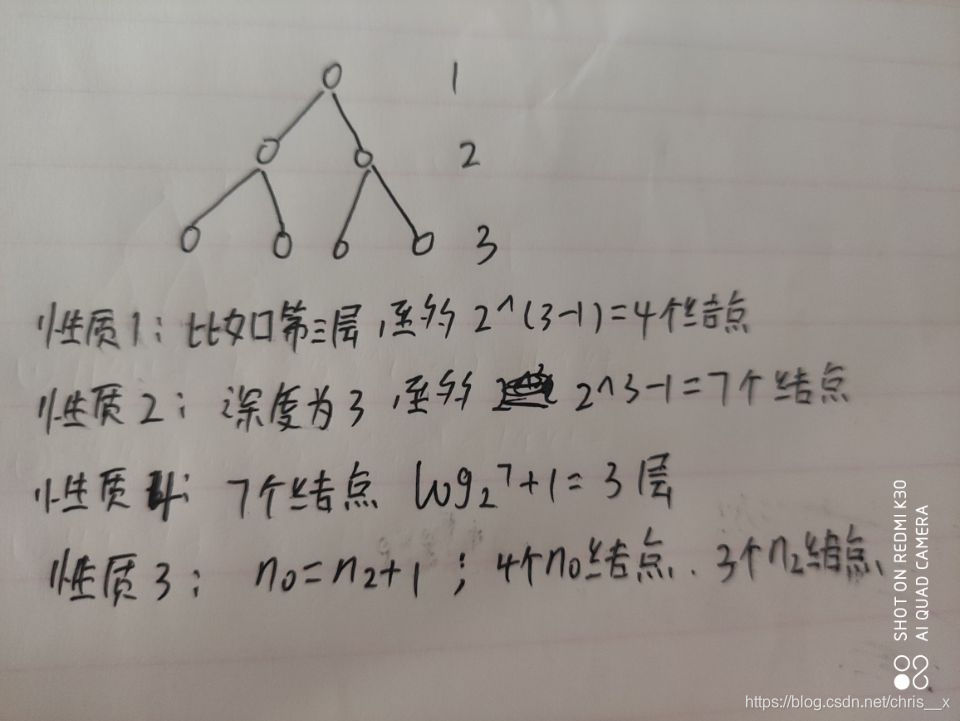 1
2
3
性质1：比如第三层，至多 2^(3-1)=4个结点
性质2：深度为3，至多 2^3-1=7个结点
性质4：7个结点 log₂7+1=3层
性质3：n₀=n₂+1；4个n₀结点、3个n₂结点
SHOT ON REDMI K30
AI QUAD CAMERA
https://blog.csdn.net/chris__x